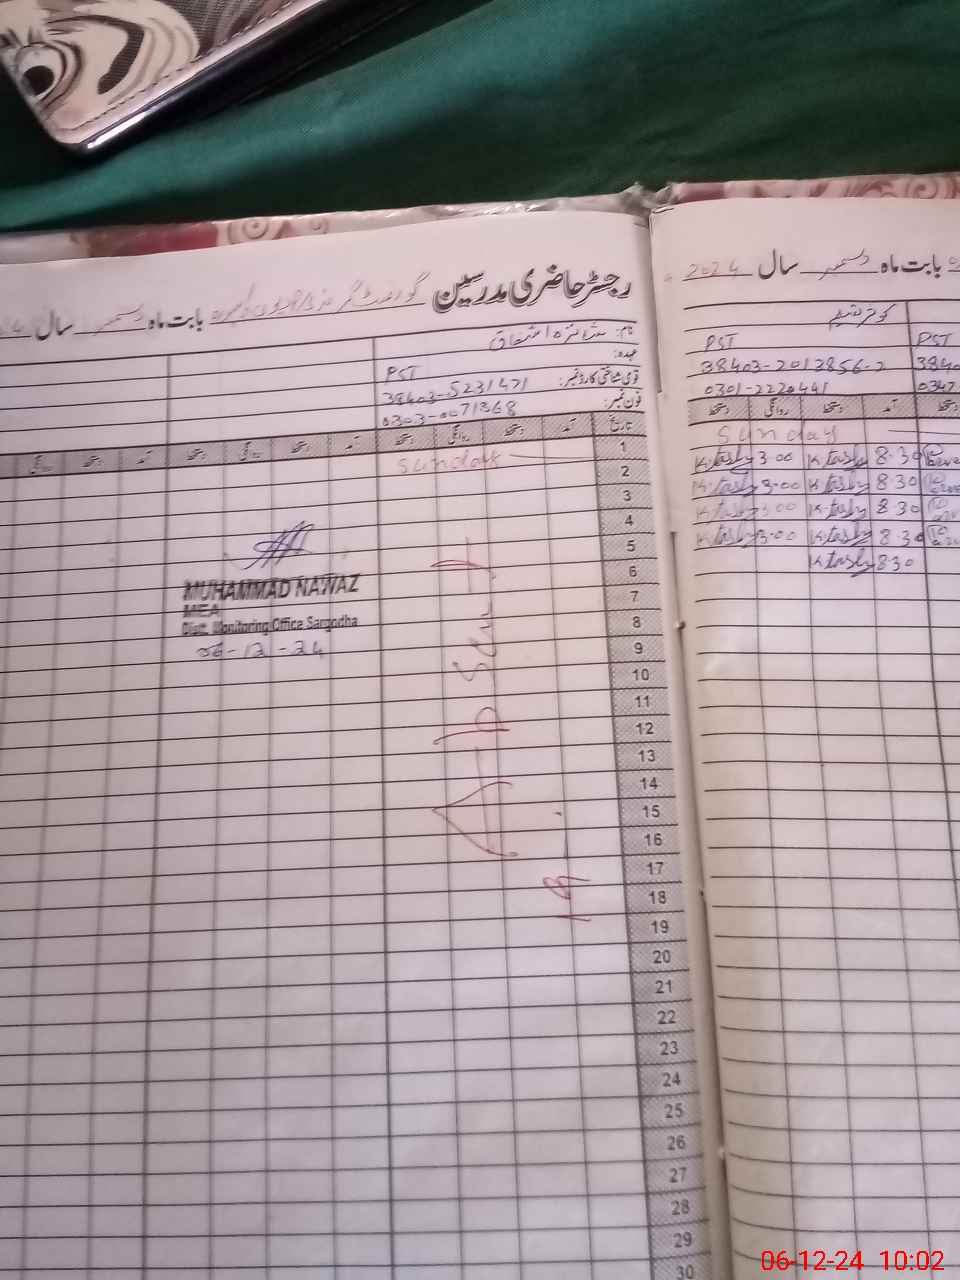 رجسٹر حاضری مدرسین گورنمنٹ گرلز بابت ماہ دسمبر سال
نام: شائزہ اشفاق
عہدہ: PST
قومی شناختی کارڈ نمبر: 38403-5231471
فون نمبر: 0303-0071368
تاریخ آمد دستخط روانگی دستخط آمد دستخط روانگی دستخط آمد دستخط روانگی
1 Sunday
2
3
4
5
6
7
8
9
10
11
12
13
14
15
16
17
18
19
20
21
22
23
24
25
26
27
28
29
30
A-b sent
MUHAMMAD NAWAZ
MEA
Distt. Monitoring Office Sargodha
06-12-24
بابت ماہ دسمبر سال 2024
کوثر تسنیم
PST PST
38403-2013856-2 3840
0301-2220441 0347
آمد دستخط روانگی دستخط
Sunday
K.tasly 3.00 K.tasly 8.30
K.tasly 3.00 K.tasly 8.30
K.tasly 3.00 K.tasly 8.30
K.tasly 3.00 K.tasly 8.30
K.tasly 8.30
06-12-24 10:02